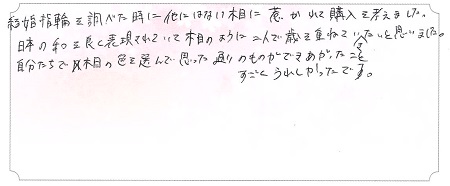 結婚指輪を調べた時に他にはない木目に惹かれて購入を考えました。
日本の和を良く表現されていて木目のように二人で歳を重ねていきたいと思いました。
自分たちで木目の色を選んで思った通りのものができあがったこと
すごくうれしかったです。